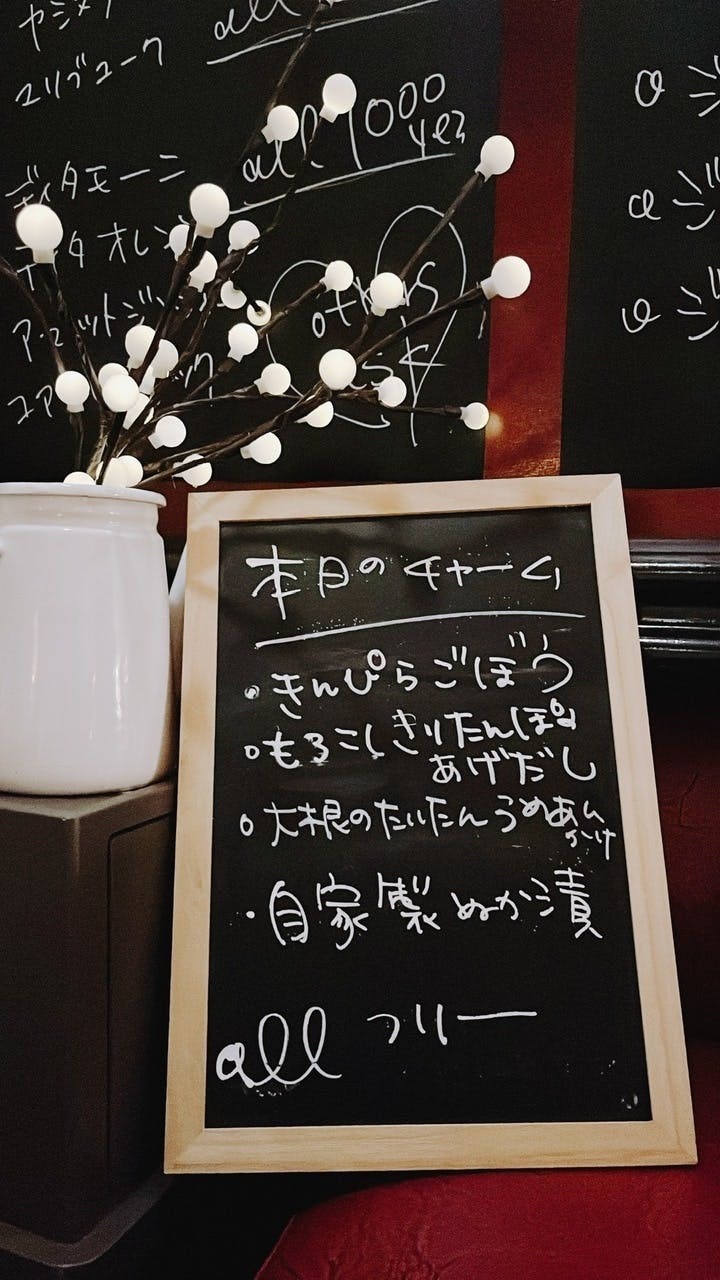 all
ユリブューク
all 1000
yen
ディタモーニ
others
a
本日のチャーム
・きんぴらごぼう
・もろこしきりたんぽの
あげだし
・大根のたいたんうめあん
かけ
・自家製ぬか漬
all フリー